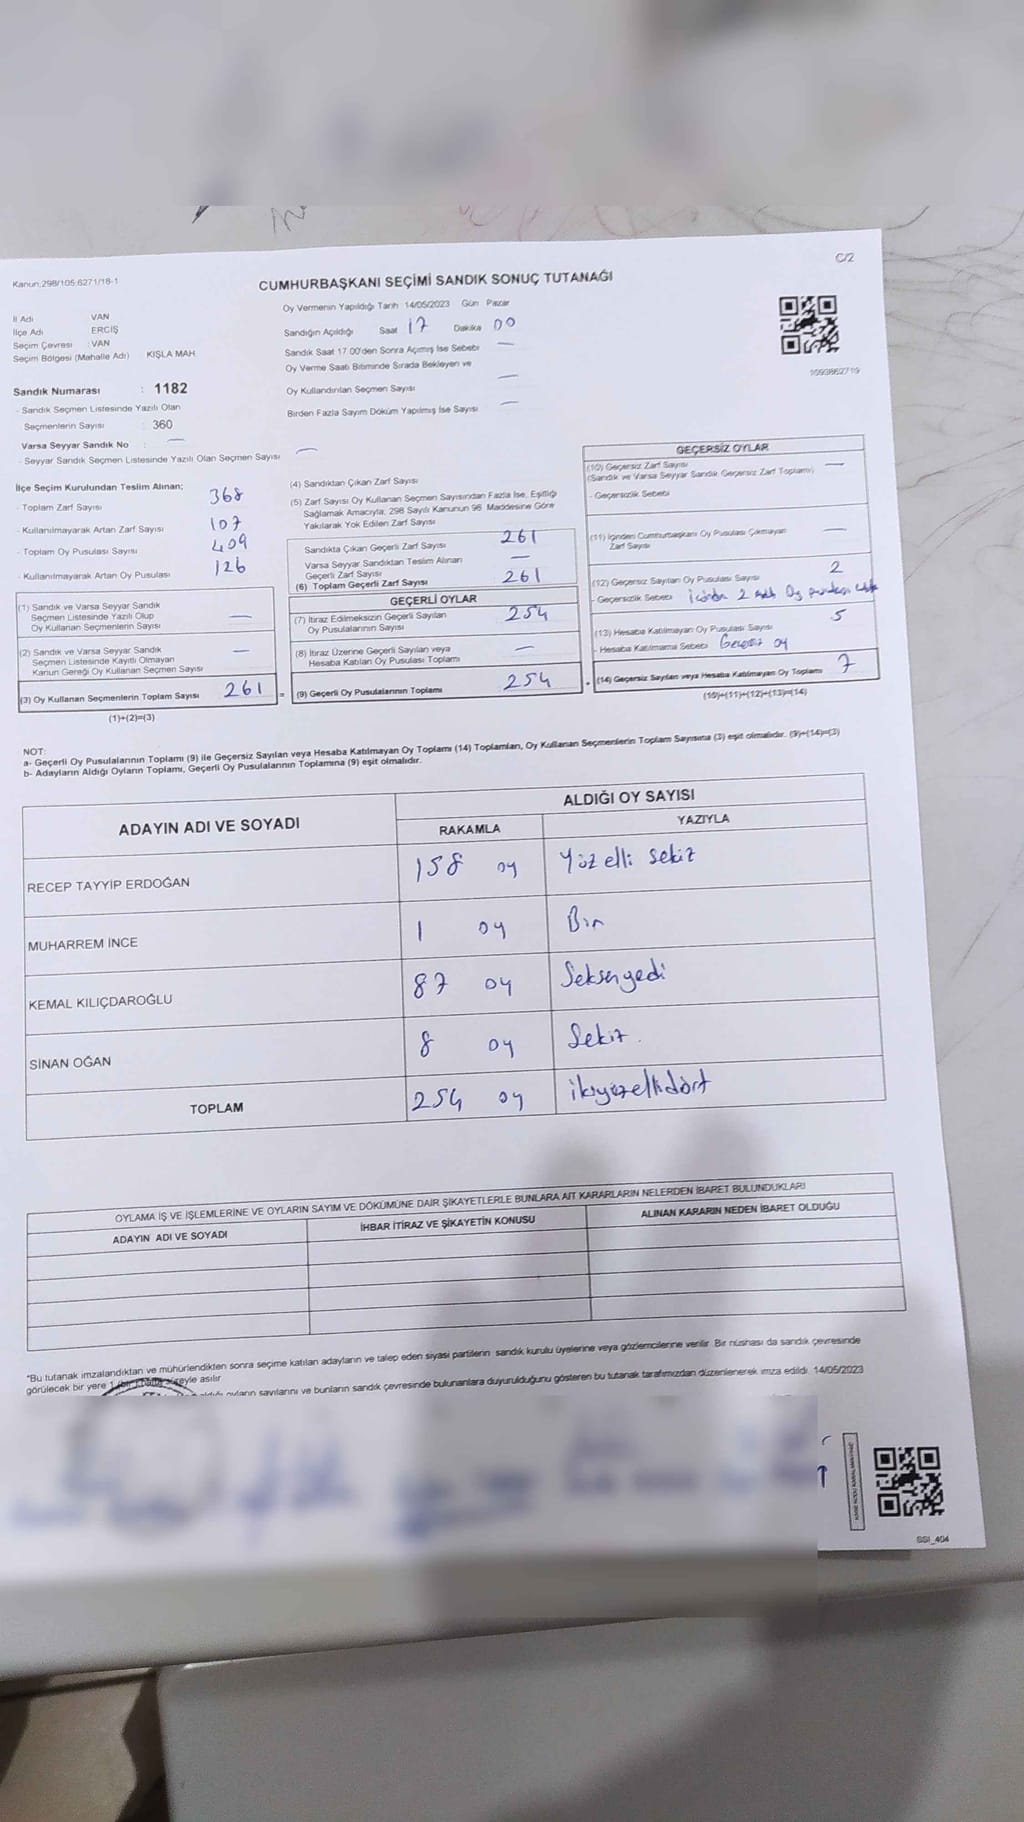 C/2
Kanun:298/105;6271/18-1
CUMHURBAŞKANI SEÇİMİ SANDIK SONUÇ TUTANAĞI
İl Adı VAN
İlçe Adı ERCİŞ
Seçim Çevresi :VAN
Seçim Bölgesi (Mahalle Adı) KIŞLA MAH.
Sandık Numarası : 1182
- Sandık Seçmen Listesinde Yazılı Olan
Seçmenlerin Sayısı : 360
Varsa Seyyar Sandık No : —
- Seyyar Sandık Seçmen Listesinde Yazılı Olan Seçmen Sayısı —
Oy Vermenin Yapıldığı Tarih 14/05/2023 Gün Pazar
Sandığın Açıldığı Saat 17 Dakika 00
Sandık Saat 17 00'den Sonra Açımış İse Sebebi —
Oy Verme Saati Bitiminde Sırada Bekleyen ve
Oy Kullandırılan Seçmen Sayısı —
Birden Fazla Sayım Döküm Yapılmış İse Sayısı —
İlçe Seçim Kurulundan Teslim Alınan;
- Toplam Zarf Sayısı 368
- Kullanılmayarak Artan Zarf Sayısı 107
- Toplam Oy Pusulası Sayısı 409
- Kullanılmayarak Artan Oy Pusulası 126
(1) Sandık ve Varsa Seyyar Sandık
Seçmen Listesinde Yazılı Olup
Oy Kullanan Seçmenlerin Sayısı —
(2) Sandık ve Varsa Seyyar Sandık
Seçmen Listesinde Kayıtlı Olmayan
Kanun Gereği Oy Kullanan Seçmen Sayısı —
(3) Oy Kullanan Seçmenlerin Toplam Sayısı 261 =
(1)+(2)=(3)
(4) Sandıktan Çıkan Zarf Sayısı
(5) Zarf Sayısı Oy Kullanan Seçmen Sayısından Fazla İse, Eşitliği
Sağlamak Amacıyla, 298 Sayılı Kanunun 98. Maddesine Göre
Yakılarak Yok Edilen Zarf Sayısı
Sandıkta Çıkan Geçerli Zarf Sayısı 261
Varsa Seyyar Sandıktan Teslim Alınan
Geçerli Zarf Sayısı —
(6) Toplam Geçerli Zarf Sayısı 261
GEÇERLİ OYLAR
(7) İtiraz Edilmeksizin Geçerli Sayılan
Oy Pusulalarının Sayısı 254
(8) İtiraz Üzerine Geçerli Sayılan veya
Hesaba Katılan Oy Pusulası Toplamı —
(9) Geçerli Oy Pusulalarının Toplamı 254
GEÇERSİZ OYLAR
(10) Geçersiz Zarf Sayısı —
(Sandık ve Varsa Seyyar Sandık Geçersiz Zarf Toplamı)
- Geçersizlik Sebebi
(11) İçinden Cumhurbaşkanı Oy Pusulası Çıkmayan
Zarf Sayısı —
(12) Geçersiz Sayılan Oy Pusulası Sayısı 2
- Geçersizlik Sebebi 2 Oy
(13) Hesaba Katılmayan Oy Pusulası Sayısı 5
- Hesaba Katılmama Sebebi Geçersiz oy
(14) Geçersiz Sayılan veya Hesaba Katılmayan Oy Toplamı 7
(10)+(11)+(12)+(13)=(14)
NOT:
a- Geçerli Oy Pusulalarının Toplamı (9) ile Geçersiz Sayılan veya Hesaba Katılmayan Oy Toplamı (14) Toplamları, Oy Kullanan Seçmenlerin Toplam Sayısına (3) eşit olmalıdır. (9)+(14)=(3)
b- Adayların Aldığı Oyların Toplamı, Geçerli Oy Pusulalarının Toplamına (9) eşit olmalıdır.
ADAYIN ADI VE SOYADI
ALDIĞI OY SAYISI
RAKAMLA YAZIYLA
RECEP TAYYİP ERDOĞAN 158 oy Yüz elli sekiz
MUHARREM İNCE 1 oy Bir
KEMAL KILIÇDAROĞLU 87 oy Seksenyedi
SİNAN OĞAN 8 oy Sekiz.
TOPLAM 254 oy ikiyüzellidört
OYLAMA İŞ VE İŞLEMLERİNE VE OYLARIN SAYIM VE DÖKÜMÜNE DAİR ŞİKAYETLERLE BUNLARA AİT KARARLARIN NELERDEN İBARET BULUNDUKLARI
ADAYIN ADI VE SOYADI İHBAR İTİRAZ VE ŞİKAYETİN KONUSU ALINAN KARARIN NEDEN İBARET OLDUĞU
*Bu tutanak imzalandıktan ve mühürlendikten sonra seçime katılan adayların ve talep eden siyasi partilerin sandık kurulu üyelerine veya gözlemcilerine verilir. Bir nüshası da sandık çevresinde
görülecek bir yere 1 (bir) hafta süreyle asılır.
oyların sayılarını ve bunların sandık çevresinde bulunanlara duyurulduğunu gösteren bu tutanak tarafımızdan düzenlenerek imza edildi. 14/05/2023
SSI_404